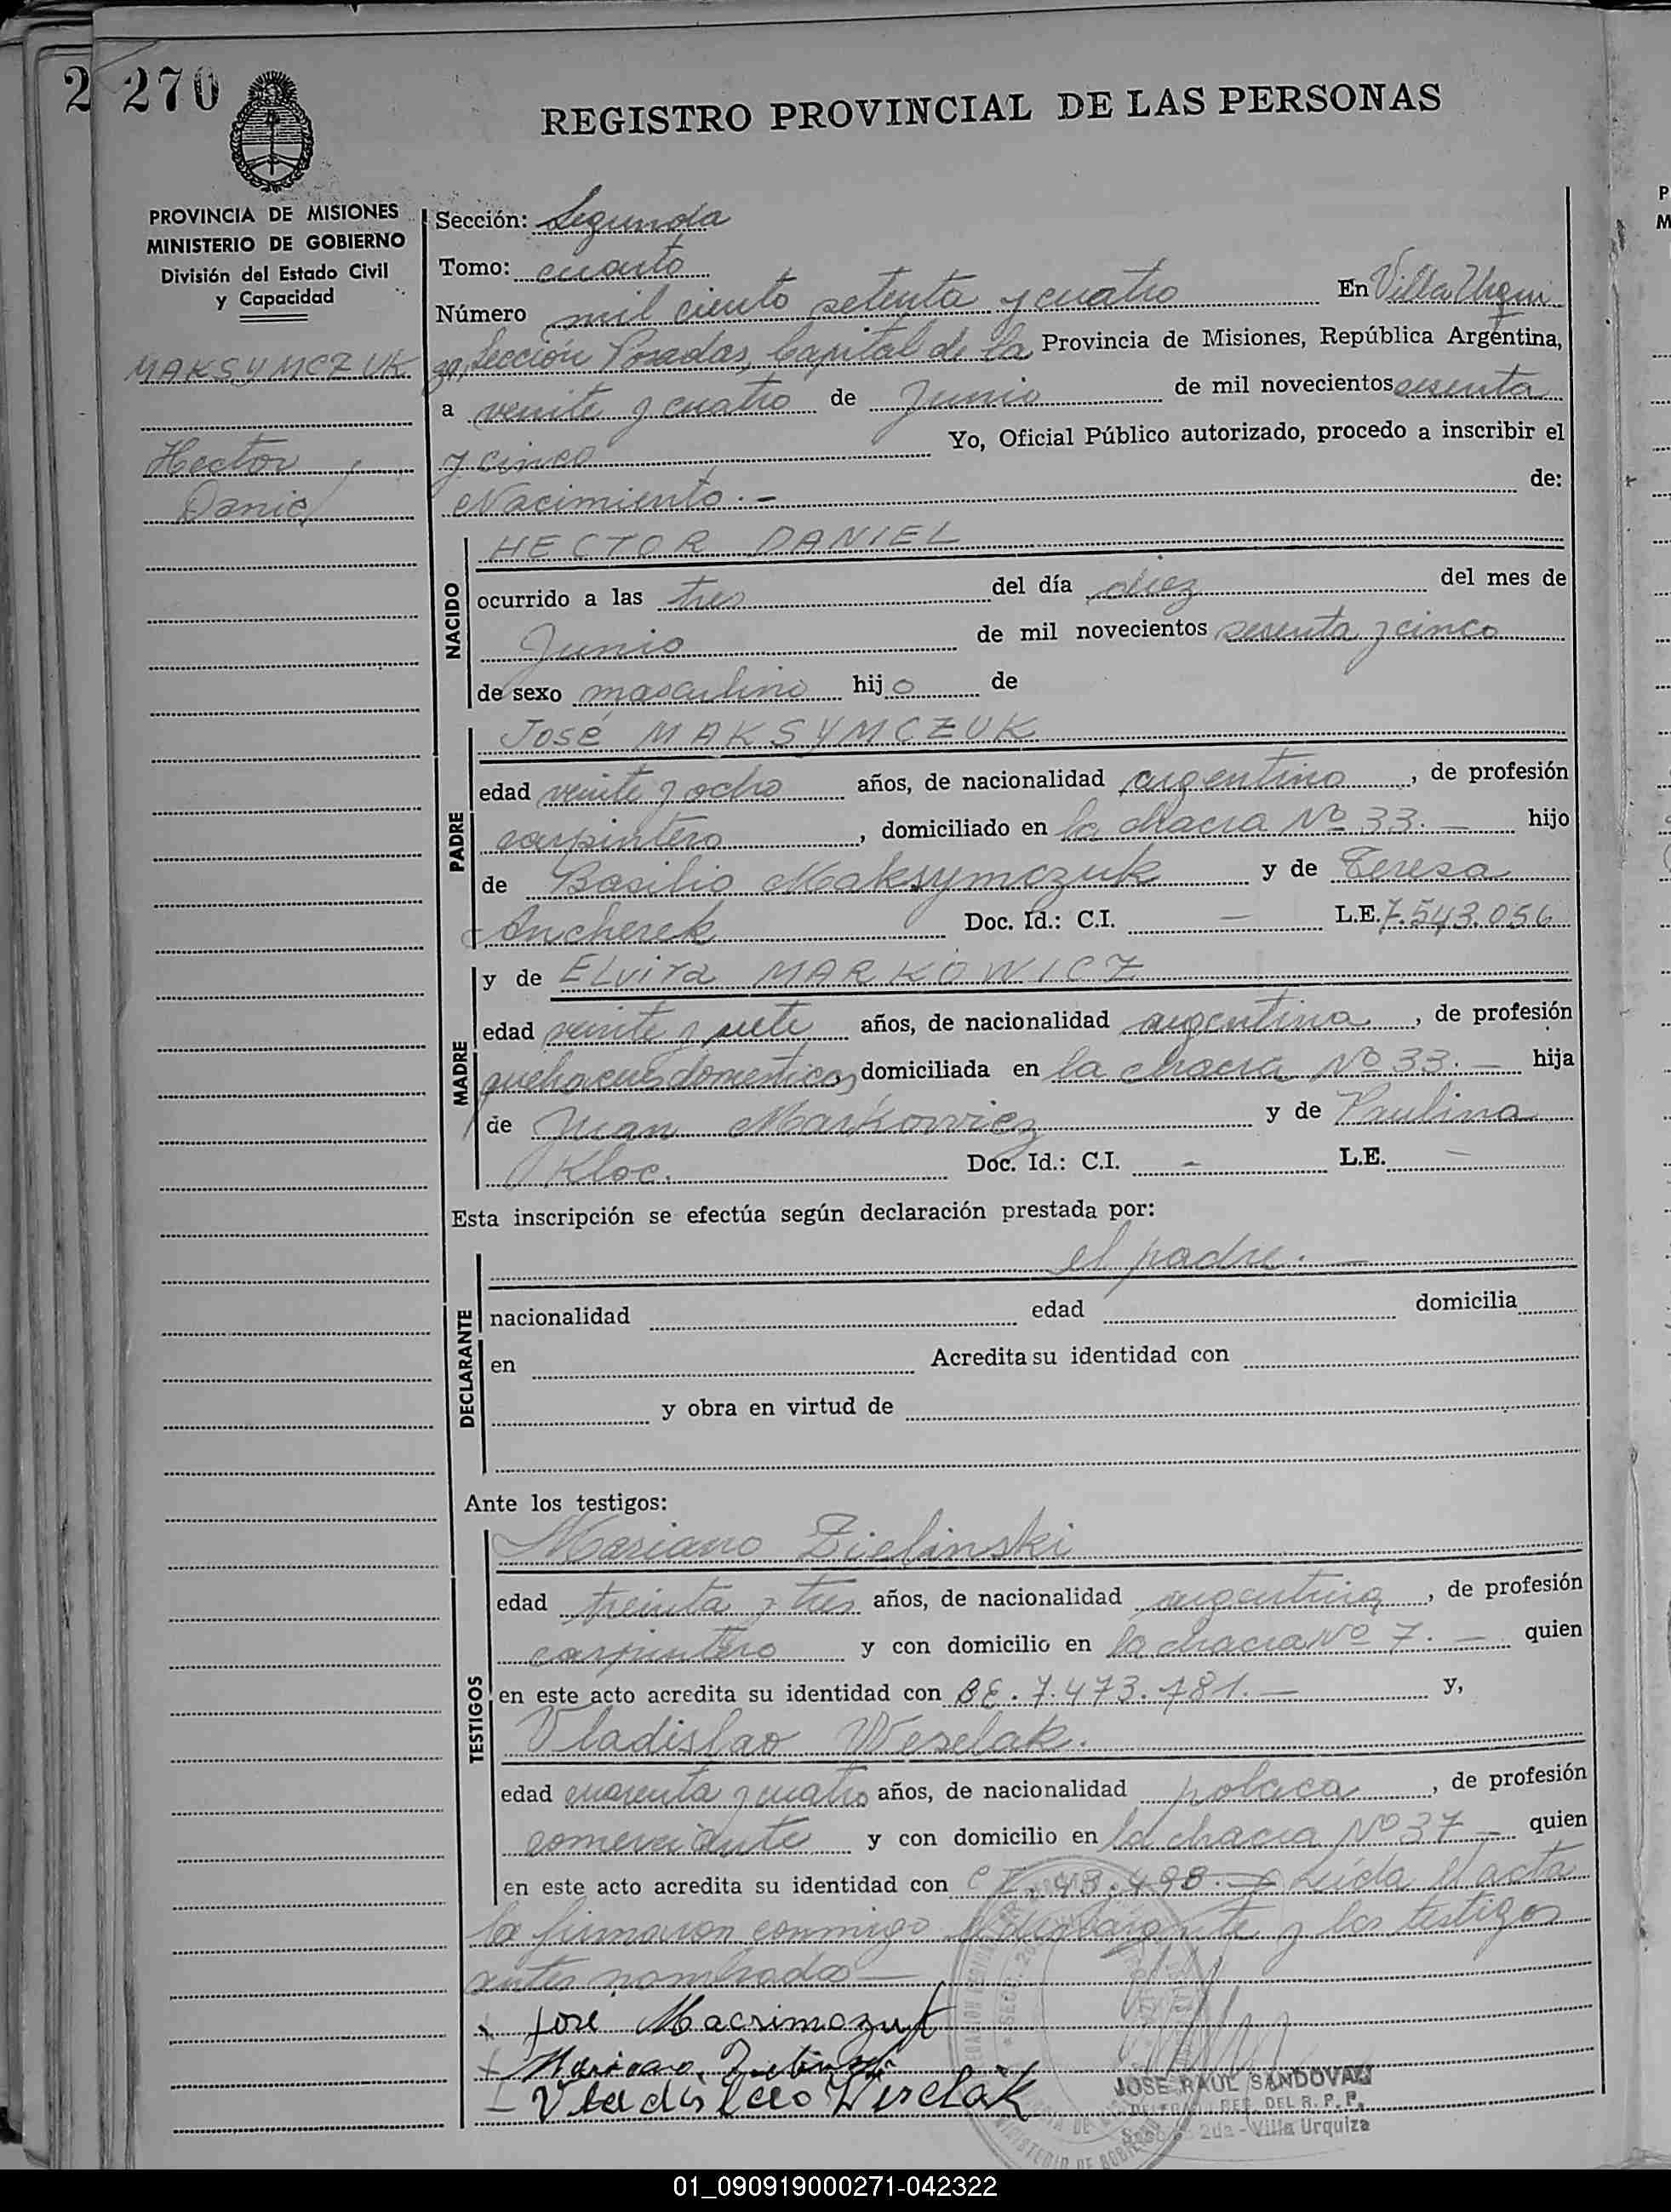 2 270
REGISTRO PROVINCIAL DE LAS PERSONAS
PROVINCIA DE MISIONES
MINISTERIO DE GOBIERNO
División del Estado Civil
y Capacidad
MAKSYMCZUK
Hector
Daniel
Sección: Segunda
Tomo: cuarto
Número mil ciento setenta y cuatro En Villa Urqui
za, Sección Posadas, Capital de la Provincia de Misiones, República Argentina,
a veinte y cuatro de Junio de mil novecientos sesenta
y cinco Yo, Oficial Público autorizado, procedo a inscribir el
Nacimiento.- de:
NACIDO
HECTOR DANIEL
ocurrido a las tres del día diez del mes de
Junio de mil novecientos sesenta y cinco
de sexo masculino hijo de
PADRE
José MAKSYMCZUK
edad veinte y ocho años, de nacionalidad argentino, de profesión
carpintero, domiciliado en la chacra Nº 33.— hijo
de Basilio Maksymczuk y de Teresa
Ancherek Doc. Id.: C.I. — L.E. 7.543.056
MADRE
y de ELvira MARKOWICZ
edad veinte y siete años, de nacionalidad argentina, de profesión
quehaceres domesticos, domiciliada en la chacra Nº 33.— hija
de Juan Markowicz y de Paulina
Kloc. Doc. Id.: C.I. - L.E. —
Esta inscripción se efectúa según declaración prestada por:
DECLARANTE
el padre.—
nacionalidad edad domicilia
en Acredita su identidad con
y obra en virtud de
Ante los testigos:
TESTIGOS
Mariano Zielinski
edad treinta y tres años, de nacionalidad argentina, de profesión
carpintero y con domicilio en la chacra Nº 7.— quien
en este acto acredita su identidad con 7.473.781.— y,
Vladislao Weselak.
edad cuarenta y cuatro años, de nacionalidad polaca, de profesión
comerciante y con domicilio en la chacra Nº 37 — quien
en este acto acredita su identidad con C.I. 43.498.— Leída el acta
la firmaron conmigo el declarante y los testigos
antes nombrados—
José Macsimozuk
Mariano Zielinski
Vladislao Weselak
JOSE RAUL SANDOVAL
DEL R. P. P.
2da - Villa Urquiza
01_090919000271-042322